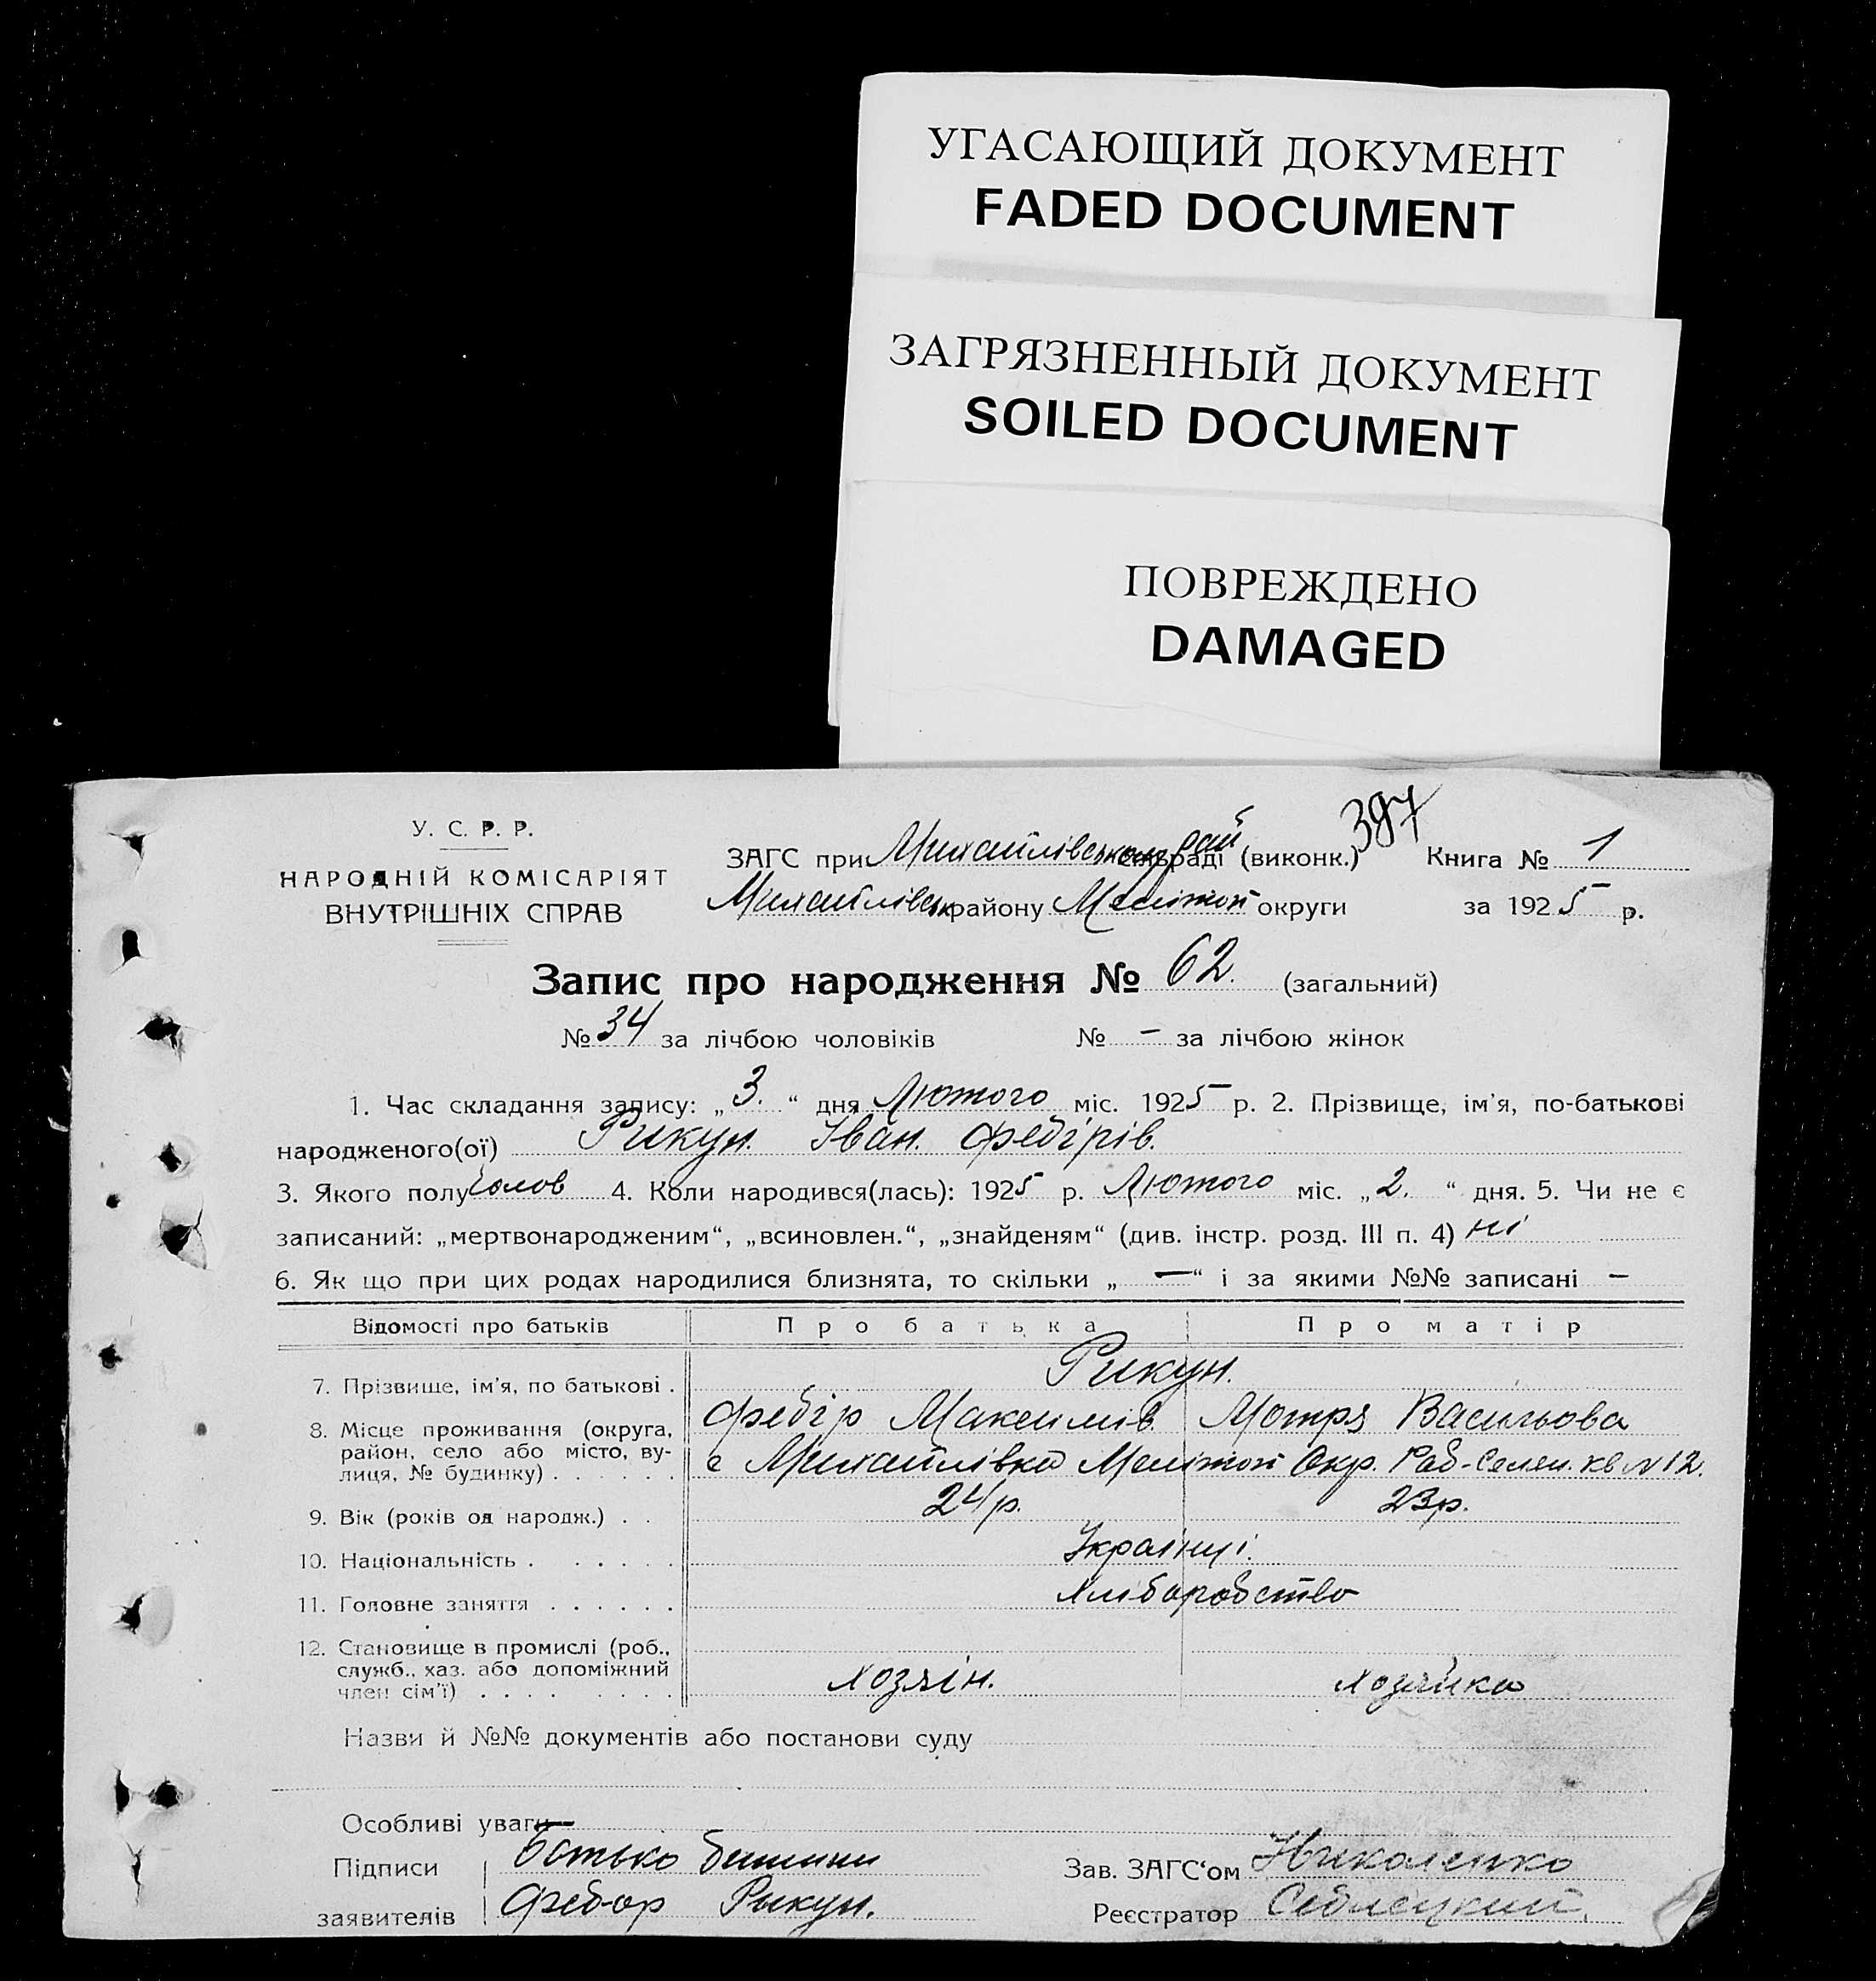 УГАСАЮЩИЙ ДОКУМЕНТ
FADED DOCUMENT
ЗАГРЯЗНЕННЫЙ ДОКУМЕНТ
SOILED DOCUMENT
ПОВРЕЖДЕНО
DAMAGED
397
У. С. Р. Р.
НАРОДНІЙ КОМІСАРІЯТ
ВНУТРІШНІХ СПРАВ
ЗАГС при Михайлівському рай сільраді (виконк.) Книга № 1
Михайлівськ району Мелітоп округи за 1925 р.
Запис про народження № 62. (загальний)
№ 34 за лічбою чоловіків № — за лічбою жінок
1. Час складання запису: „3.“ дня Лютого міс. 1925 р. 2. Прізвище, ім'я, по-батькові
народженого(ої) Рикун. Іван. Федірів.
3. Якого полу Чолов 4. Коли народився(лась): 1925 р. Лютого міс. „2.“ дня. 5. Чи не є
записаний: „мертвонародженим“, „всиновлен.“, „знайденям“ (див. інстр. розд. III п. 4) ні
6. Як що при цих родах народилися близнята, то скільки „—“ і за якими №№ записані —
Відомості про батьків Про батька Про матір
7. Прізвище, ім'я, по батькові . Рикун.
Федір Максимів. Мотря Васильова
8. Місце проживання (округа,
район, село або місто, ву-
лиця, № будинку) . . . . . . с Михайлівка Мелітоп Окр. Раб-Селян. кв № 12.
9. Вік (років од народж.) . . 24 р. 23 р.
10. Національність . . . . . . Українці.
11. Головне заняття . . . . . . Хліборобство
12. Становище в промислі (роб.,
служб., хаз. або допоміжний
член сім'ї) . . . . . . . . Хозяін. Хозяйка
Назви й №№ документів або постанови суду
Особливі уваги —
Підписи батько дитини Зав. ЗАГС'ом Николенко
заявителів Федор Рыкун. Реєстратор